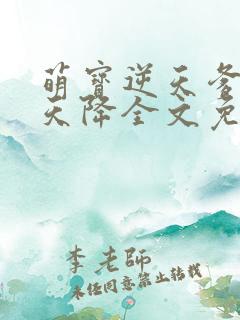 萌寶逆天爹
天降全文免
李老師
未经同意禁止转载